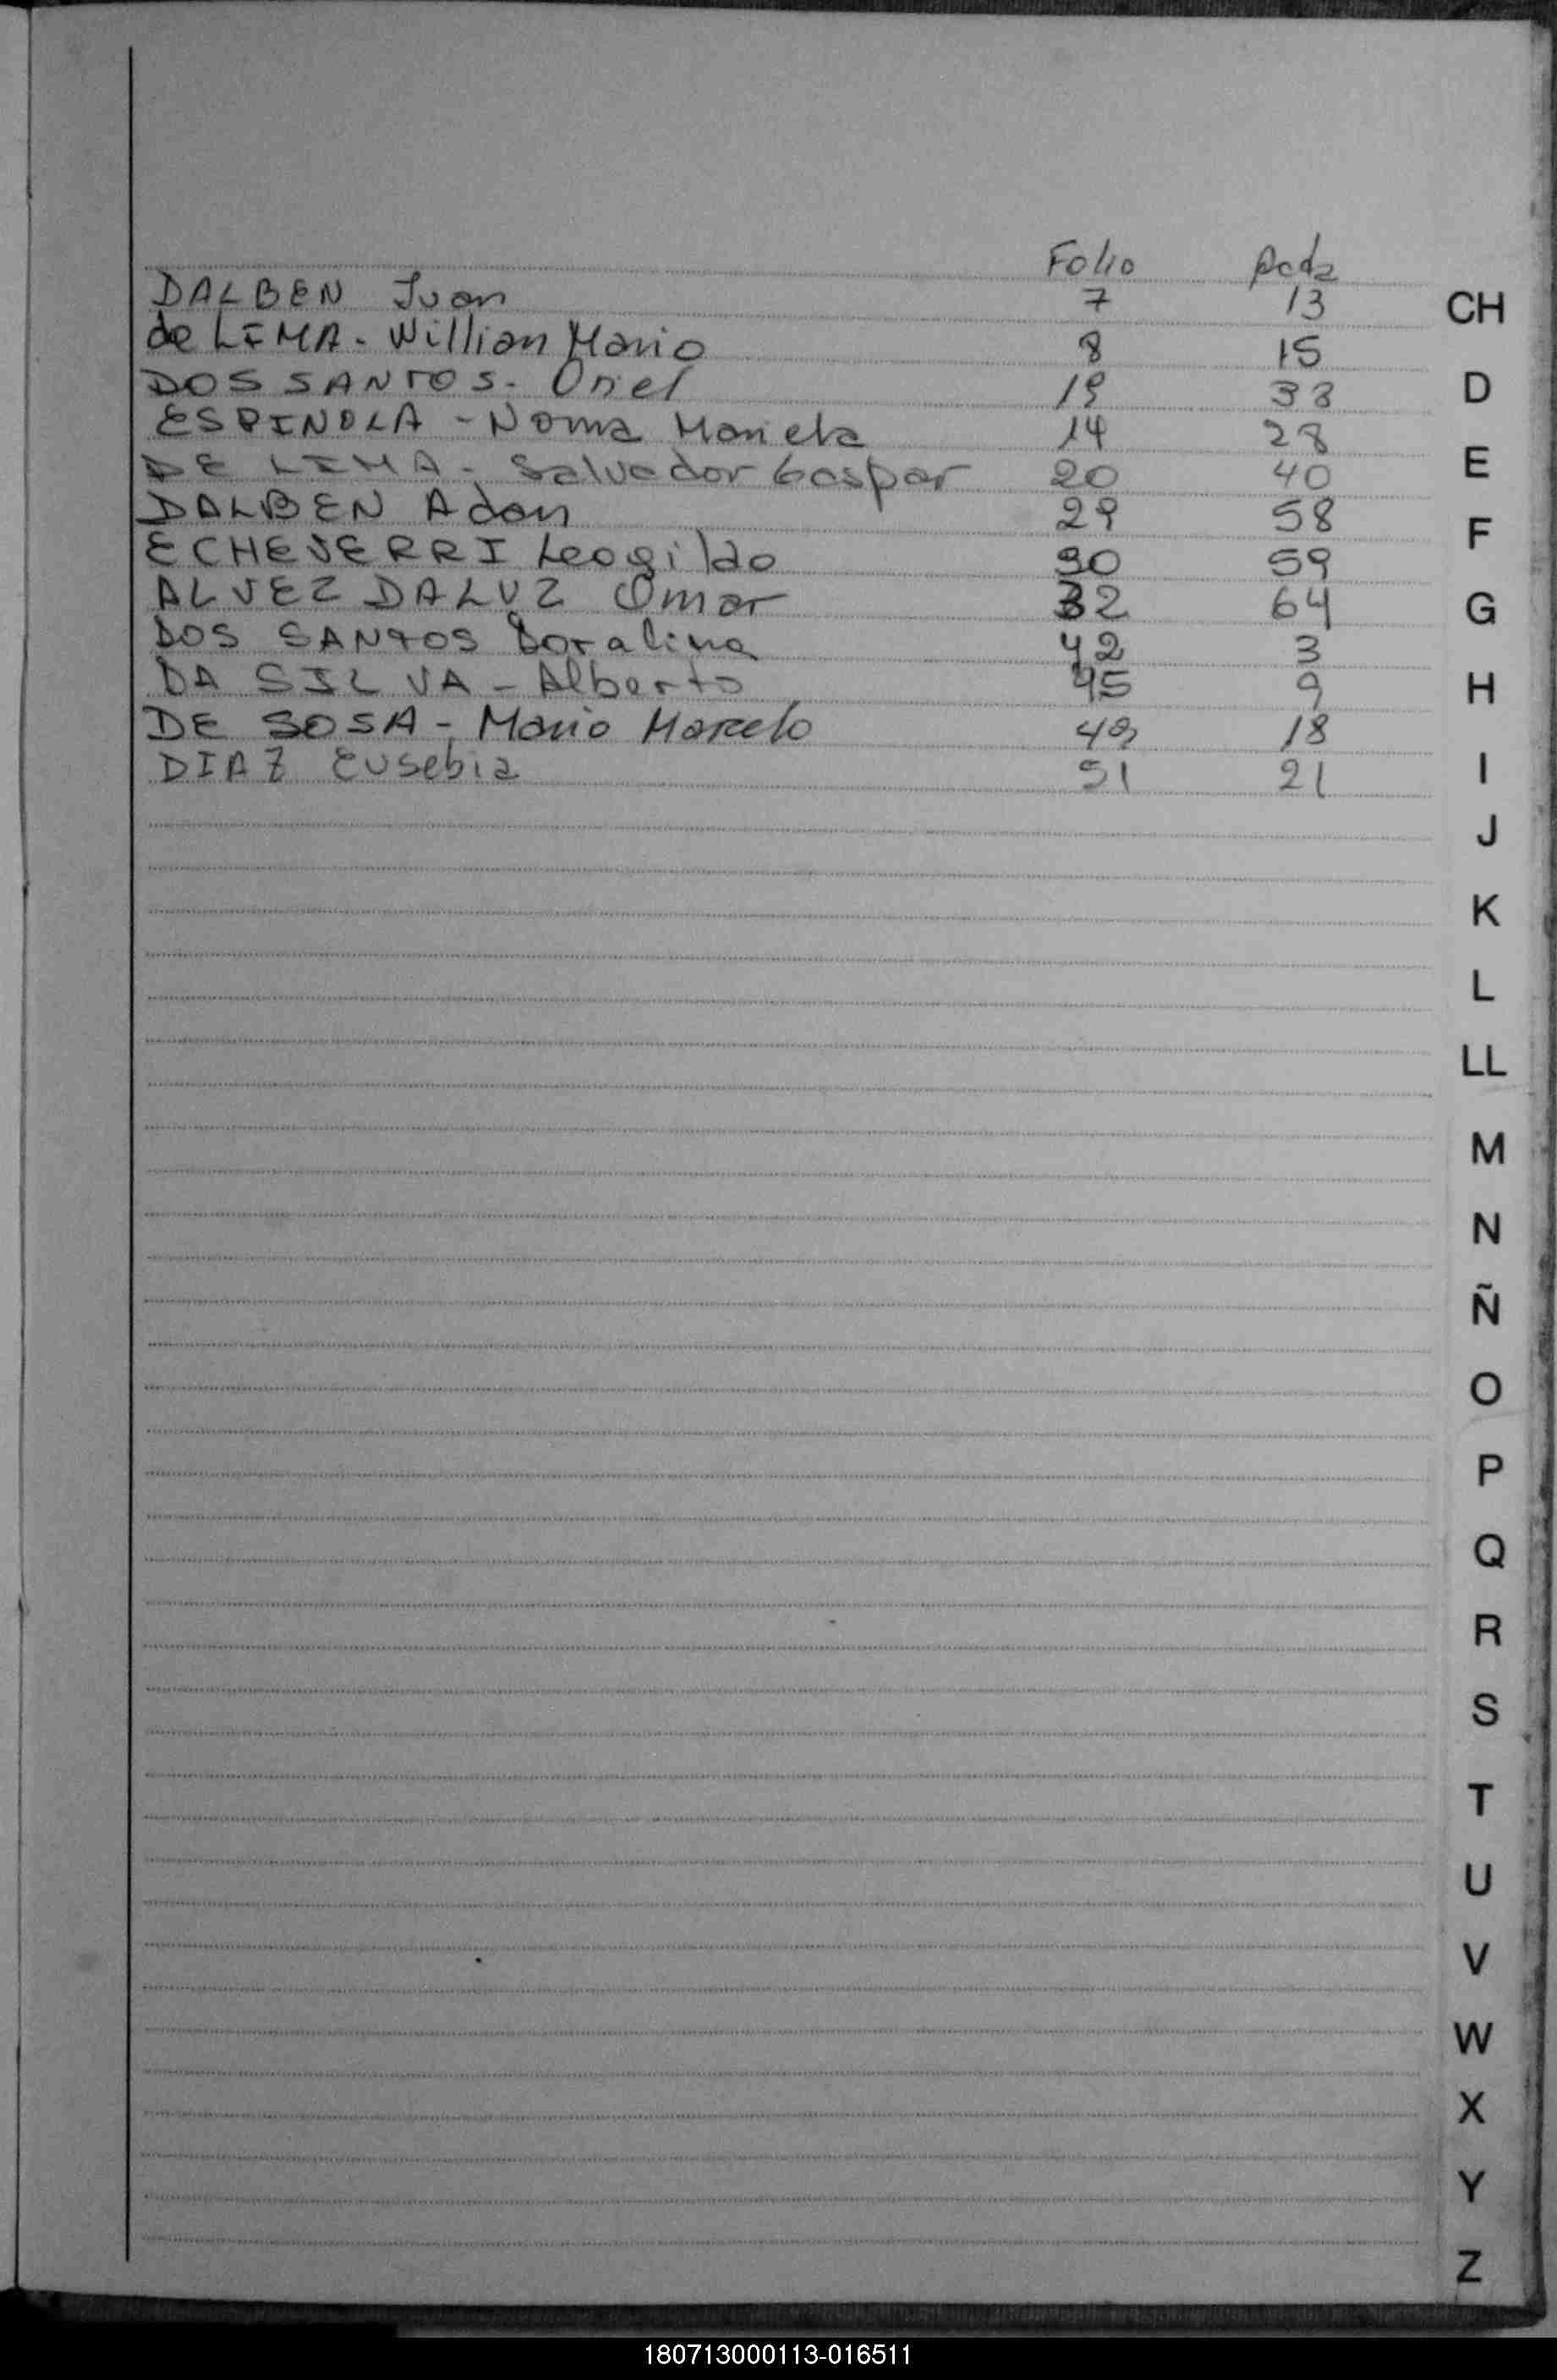 Folio Acta
DALBEN Juan 7 13
de LIMA - Willian Mario 8 15
DOS SANTOS - Oriel 19 38
ESPINDLA - Norma Marieta 14 28
DE LIMA - Salvador Gaspar 20 40
DALBEN Adan 29 58
ECHEVERRI Leogildo 30 59
ALVEZ DALUZ Omar 32 64
DOS SANTOS Doralina 42 3
DA SILVA - Alberto 45 9
DE SOSA - Mario Marcelo 49 18
DIAZ Eusebia 51 21
CH
D
E
F
G
H
I
J
K
L
LL
M
N
Ñ
O
P
Q
R
S
T
U
V
W
X
Y
Z
180713000113-016511